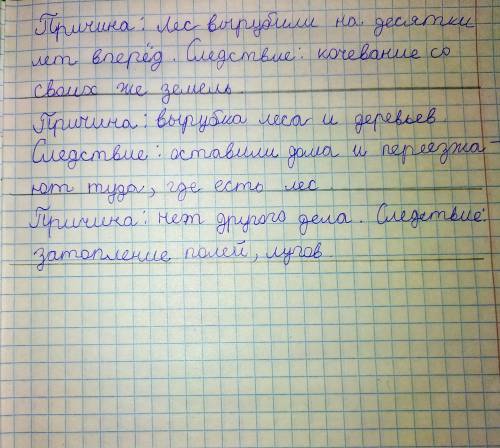 Причина: Лес вырубили на десятки
лет вперёд. Следствие: кочевание со
своих же земель.
Причина: вырубка леса и деревьев
Следствие: оставили дома и переезжа-
ют туда, где есть лес
Причина: нет другого дела. Следствие:
затопление полей, лугов.